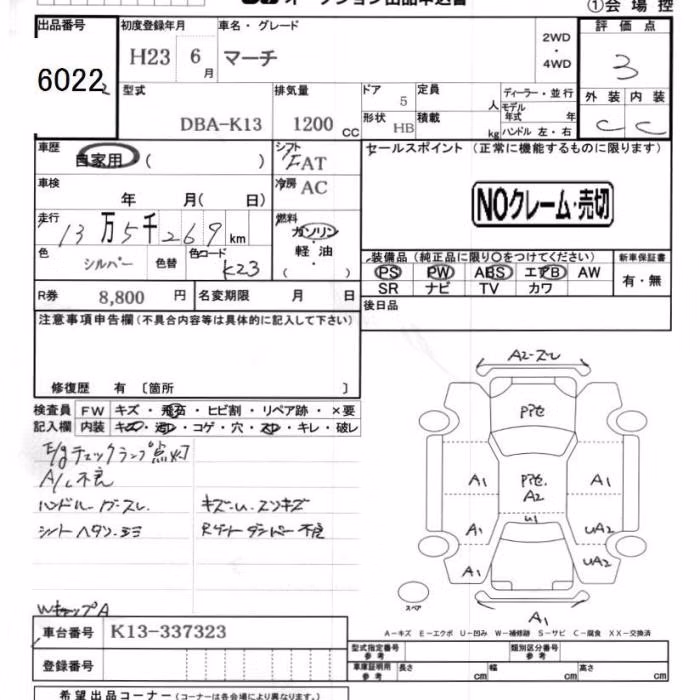 オークション出品申込書
①会場控
出品番号 初度登録年月 車名・グレード 2WD・4WD 評価点
6022 H23 6月 マーチ 3
型式 排気量 ドア 定員 人 ディーラー・並行 外装 内装
DBA-K13 1200 CC 5 モデル年式 年 C C
形状 HB 積載 kg ハンドル 左・右
車歴 自家用 ( ) シフト FAT セールスポイント (正常に機能するものに限ります)
車検 年 月( 日) 冷房 AC NOクレーム・売切
走行 13万5千269km 燃料 ガソリン・軽油・( )
色 シルバー 色替 色コード K23
装備品 (純正品に限り○をつけてください) 新車保証書
PS PW ABS エアB AW 有・無
SR ナビ TV カワ
R券 8,800 円 名変期限 月 日 後日品
注意事項申告欄 (不具合内容等は具体的に記入して下さい)
修復歴 有 〔箇所 〕
検査員 FW キズ・飛石・ヒビ割・リペア跡・×要
記入欄 内装 キズ・汚レ・コゲ・穴・スレ・キレ・破レ
E/gチェックランプ点灯
A/C不良
ハンドル
シートヘタリ・ヨゴレ
Rゲートダンパー不良
WキャップA
A2-スレ
A1
A2
U1
A1
A1
UA2
A1
UA2
スペア
A1
A-キズ E-エクボ U-凹み W-補修跡 S-サビ C-腐食 XX-交換済
車台番号 K13-337323
型式指定番号 参考 類別区分番号 参考
登録番号
車庫証明用 参考 長さ cm 幅 cm 高さ cm
希望出品コーナー (コーナーは各会場により異なります。)